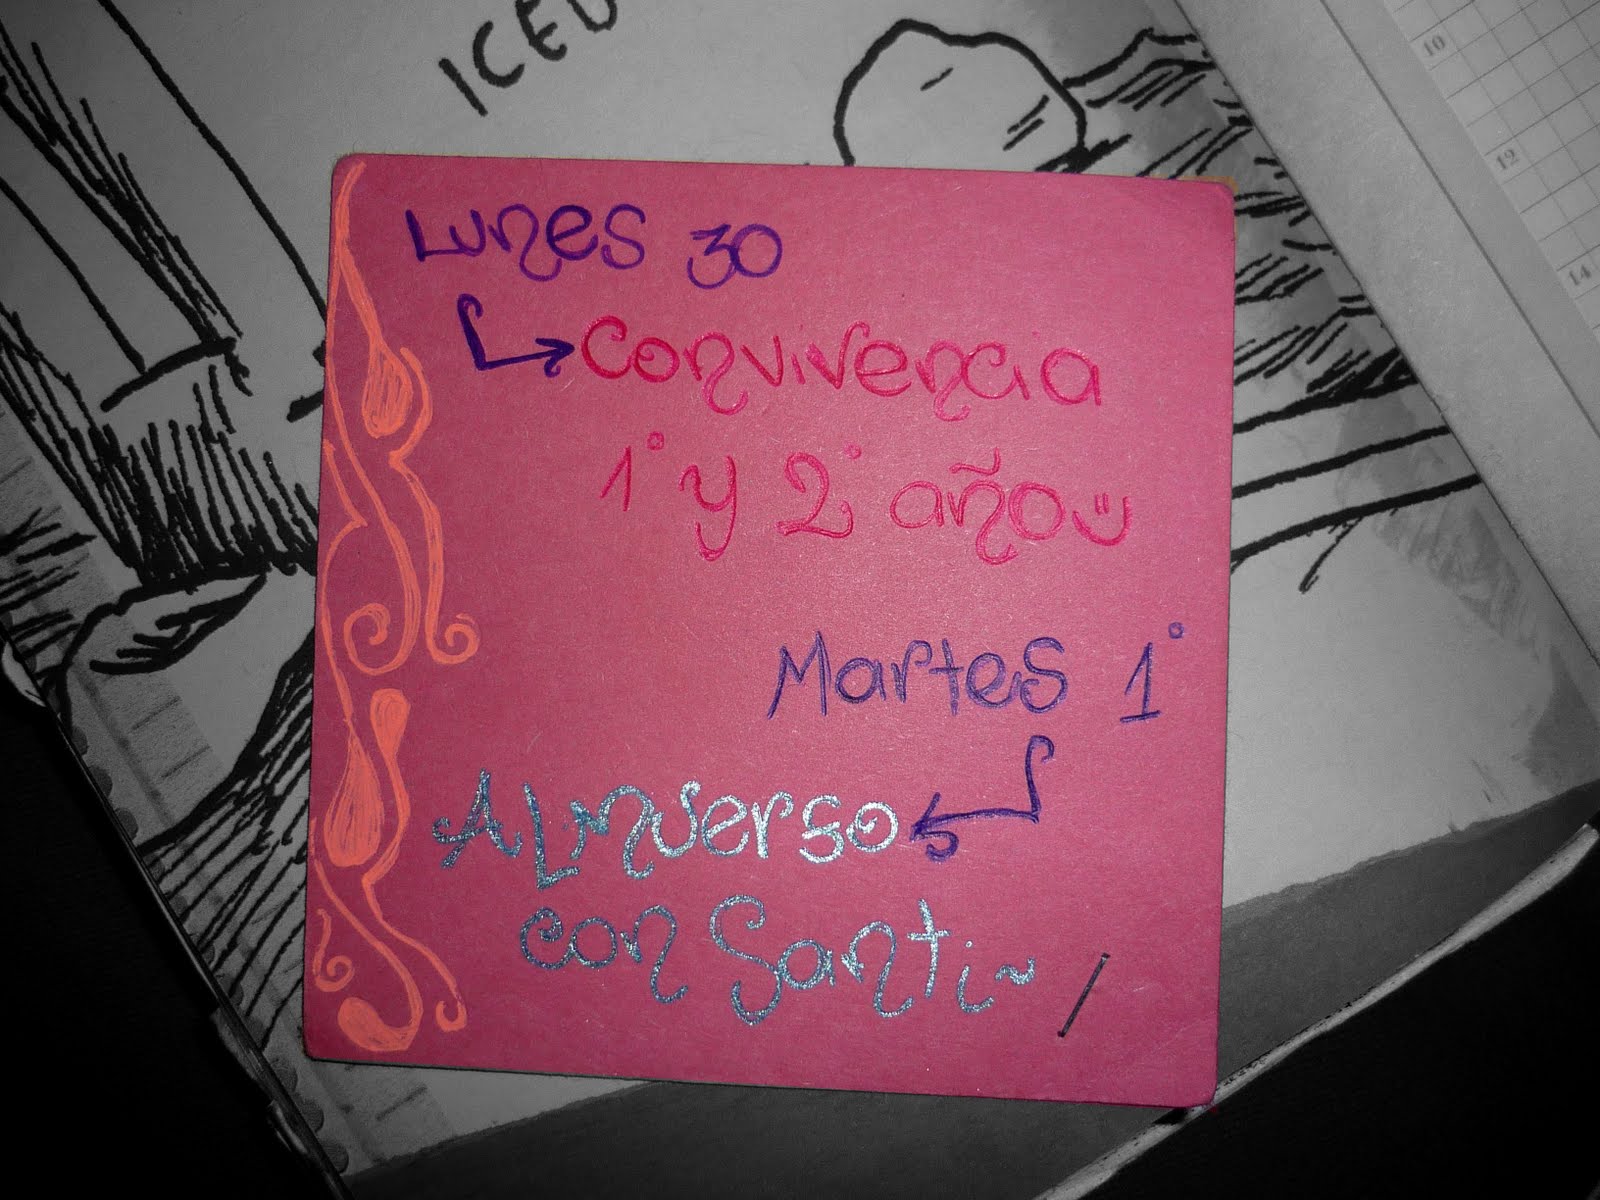 ICED
10
12
14
Lunes 30
Convivencia
1° y 2° año
Martes 1°
Almuerzo
con Santi~